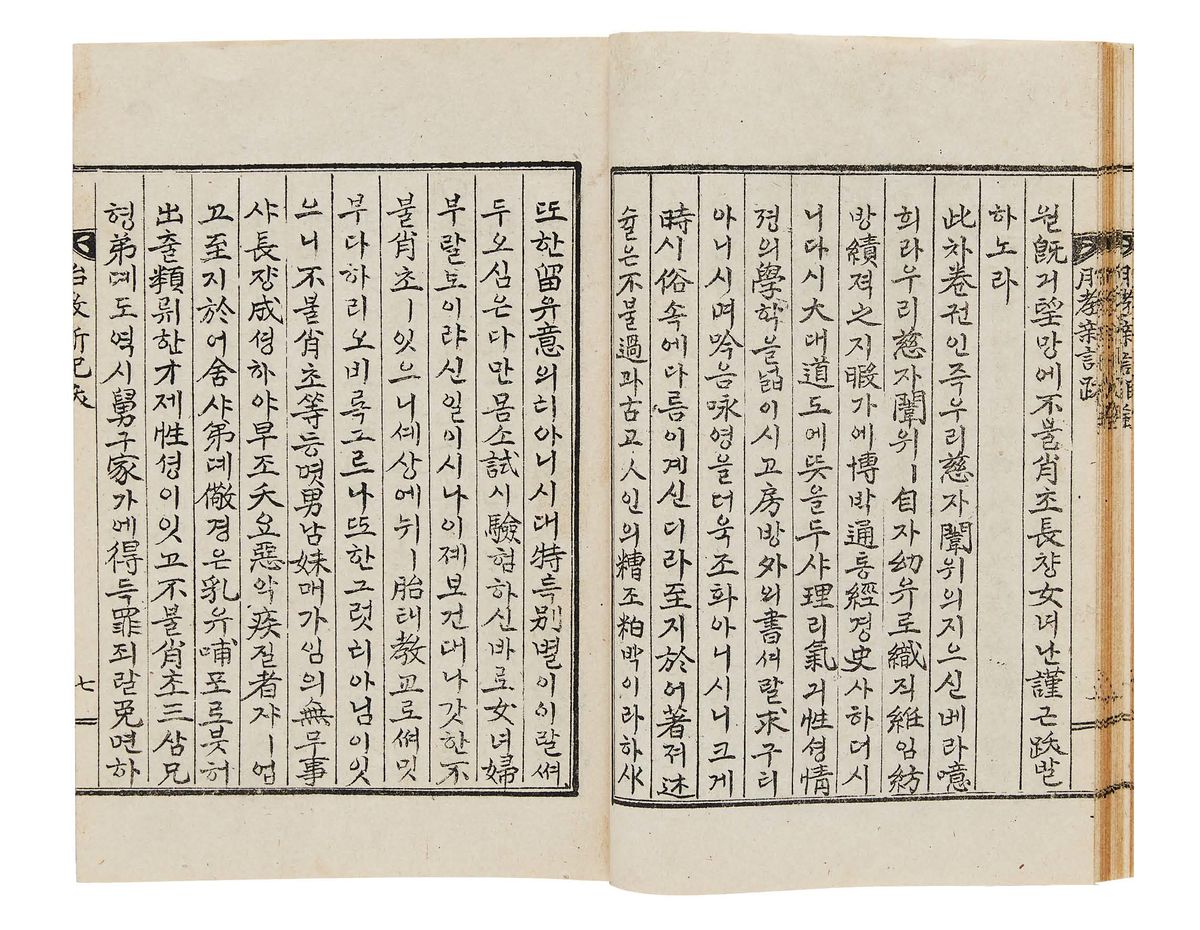 월旣긔望망에不불肖초長쟝女녀난謹근跋발
하노라
此차卷권인즉우리慈자闈위의지으신베라噫
희라우리慈자闈위ㅣ自자幼유로織직紝임紡
방績젹之지暇가에博박通통經경史사하더시
니다시大대道도에뜻을두샤理리氣긔性셩情
졍의學학을넓이시고房방外외書셔랄求구티
아니시며吟음咏영을더욱조화아니시니크게
時시俗속에다름이계신디라至지於어著져述
슐은不불過과古고人인의糟조粕박이라하샤
또한留유意의티아니시대特특別별이이랄셔
두오심은다만몸소試시驗험하신바로女녀婦
부랄도이랴신일이시나이졔보건대나갓한不
불肖초ㅣ잇으니셰상에뉘ㅣ胎태敎교로셔밋
부다하리오비록그르나또한그럿티아님이잇
으니不불肖초等등몃男남妹매가임의無무事
샤長쟝成셩하야早조夭요惡악疾질者쟈ㅣ업
고至지於어舍샤弟뎨儆경은乳유哺포로븟허
出츌類류한才제性셩이잇고不불肖초三삼兄
형弟뎨도역시舅구家가에得득罪죄랄免면하
七